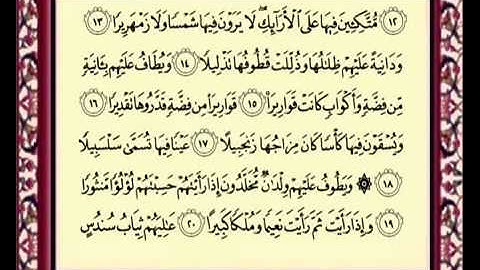 ﴿١٢﴾ مُتَّكِـِٔينَ فِيهَا عَلَى ٱلْأَرَآئِكِ ۖ لَا يَرَوْنَ فِيهَا شَمْسًا وَلَا زَمْهَرِيرًا ﴿١٣﴾
وَدَانِيَةً عَلَيْهِمْ ظِلَـٰلُهَا وَذُلِّلَتْ قُطُوفُهَا تَذْلِيلًا ﴿١٤﴾ وَيُطَافُ عَلَيْهِم بِـَٔانِيَةٍ
مِّن فِضَّةٍ وَأَكْوَابٍ كَانَتْ قَوَارِيرَا۠ ﴿١٥﴾ قَوَارِيرَا۟ مِن فِضَّةٍ قَدَّرُوهَا تَقْدِيرًا ﴿١٦﴾
وَيُسْقَوْنَ فِيهَا كَأْسًا كَانَ مِزَاجُهَا زَنجَبِيلًا ﴿١٧﴾ عَيْنًا فِيهَا تُسَمَّىٰ سَلْسَبِيلًا
﴿١٨﴾ ۞ وَيَطُوفُ عَلَيْهِمْ وِلْدَٰنٌ مُّخَلَّدُونَ إِذَا رَأَيْتَهُمْ حَسِبْتَهُمْ لُؤْلُؤًا مَّنثُورًا
﴿١٩﴾ وَإِذَا رَأَيْتَ ثَمَّ رَأَيْتَ نَعِيمًا وَمُلْكًا كَبِيرًا ﴿٢٠﴾ عَـٰلِيَهُمْ ثِيَابُ سُندُسٍ